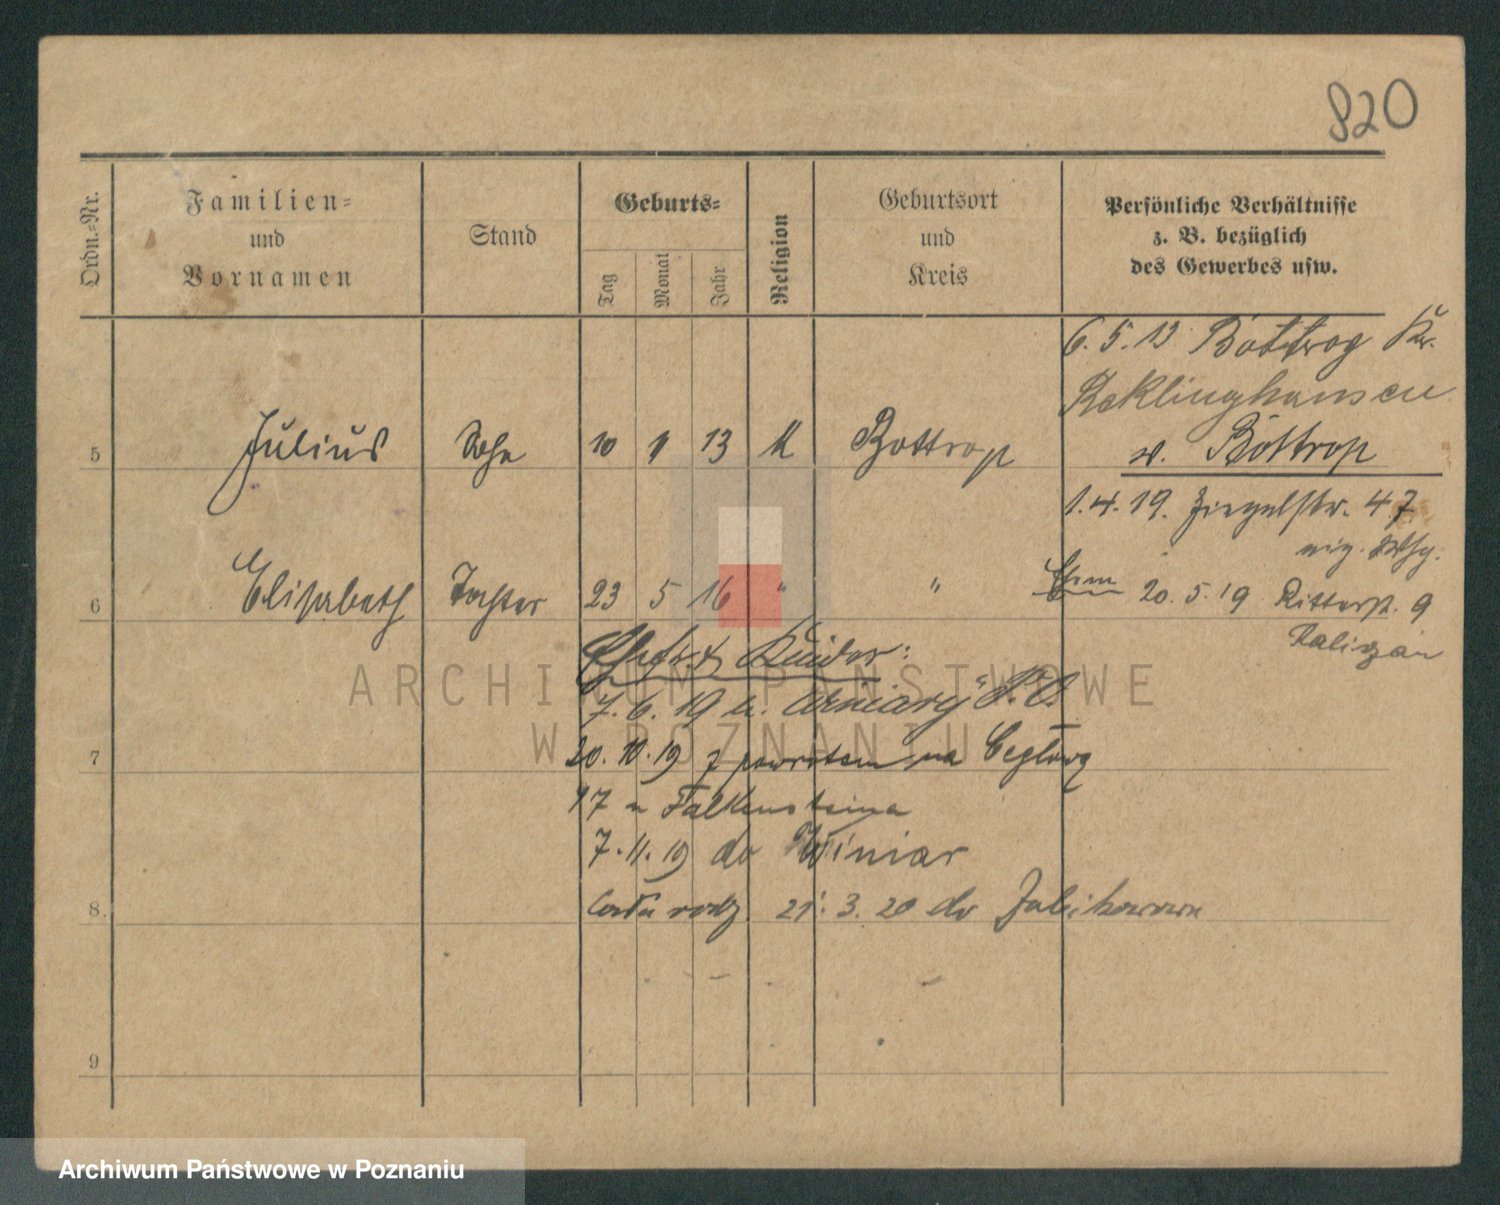 820
Ordn.-Nr.
Familien-
und
Vornamen
Stand
Geburts-
Tag
Monat
Jahr
Religion
Geburtsort
und
Kreis
Persönliche Verhältnisse
z. B. bezüglich
des Gewerbes usw.
6. 5. 13 Bottrop Kr.
Reklinghausen
5 Julius Sohn 10 1 13 K Bottrop
v. Bottrop
1. 4. 19. Ziegelstr. 47
eig. Whg.
6 Elisabeth Tochter 23 5 16 " "
20. 5. 19 Ritterst. 9
Ehefr. & Kinder:
7. 6. 19 n. Winiary P. O.
7
20. 10. 19 z powrotem na Ceglową
47 u Falkensteina
7. 11. 19 do Winiar
8 cała rodz. 21. 3. 20 do Żabikowa
9
ARCHIWUM PAŃSTWOWE
W POZNANIU
Archiwum Państwowe w Poznaniu